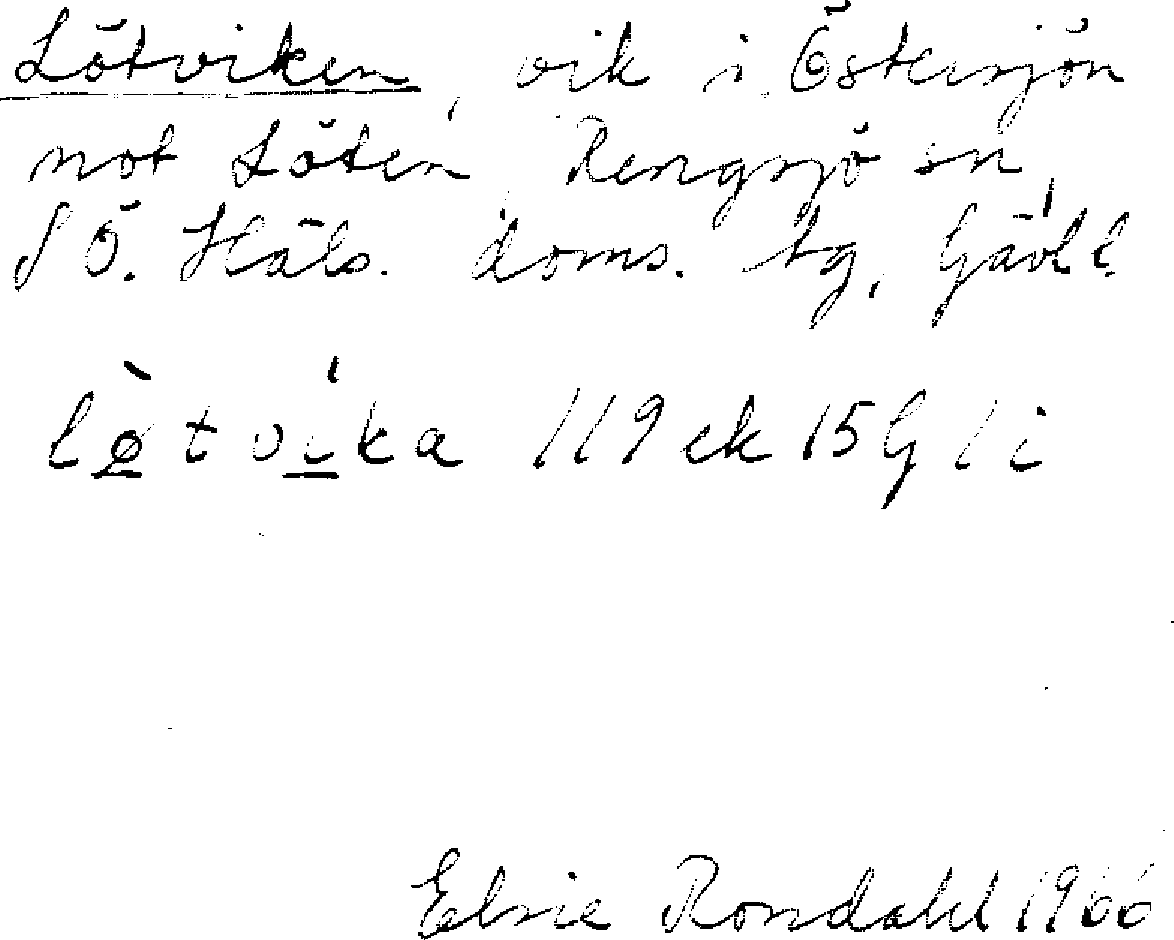 Lötviken, vik i Östersjön
mot Löten, Rengsjö sn,
SÖ. Häls. doms. tg, Gävl l.
lø̀tvíka 119 ek 15G 1 i
Elsie Rondahl 1966